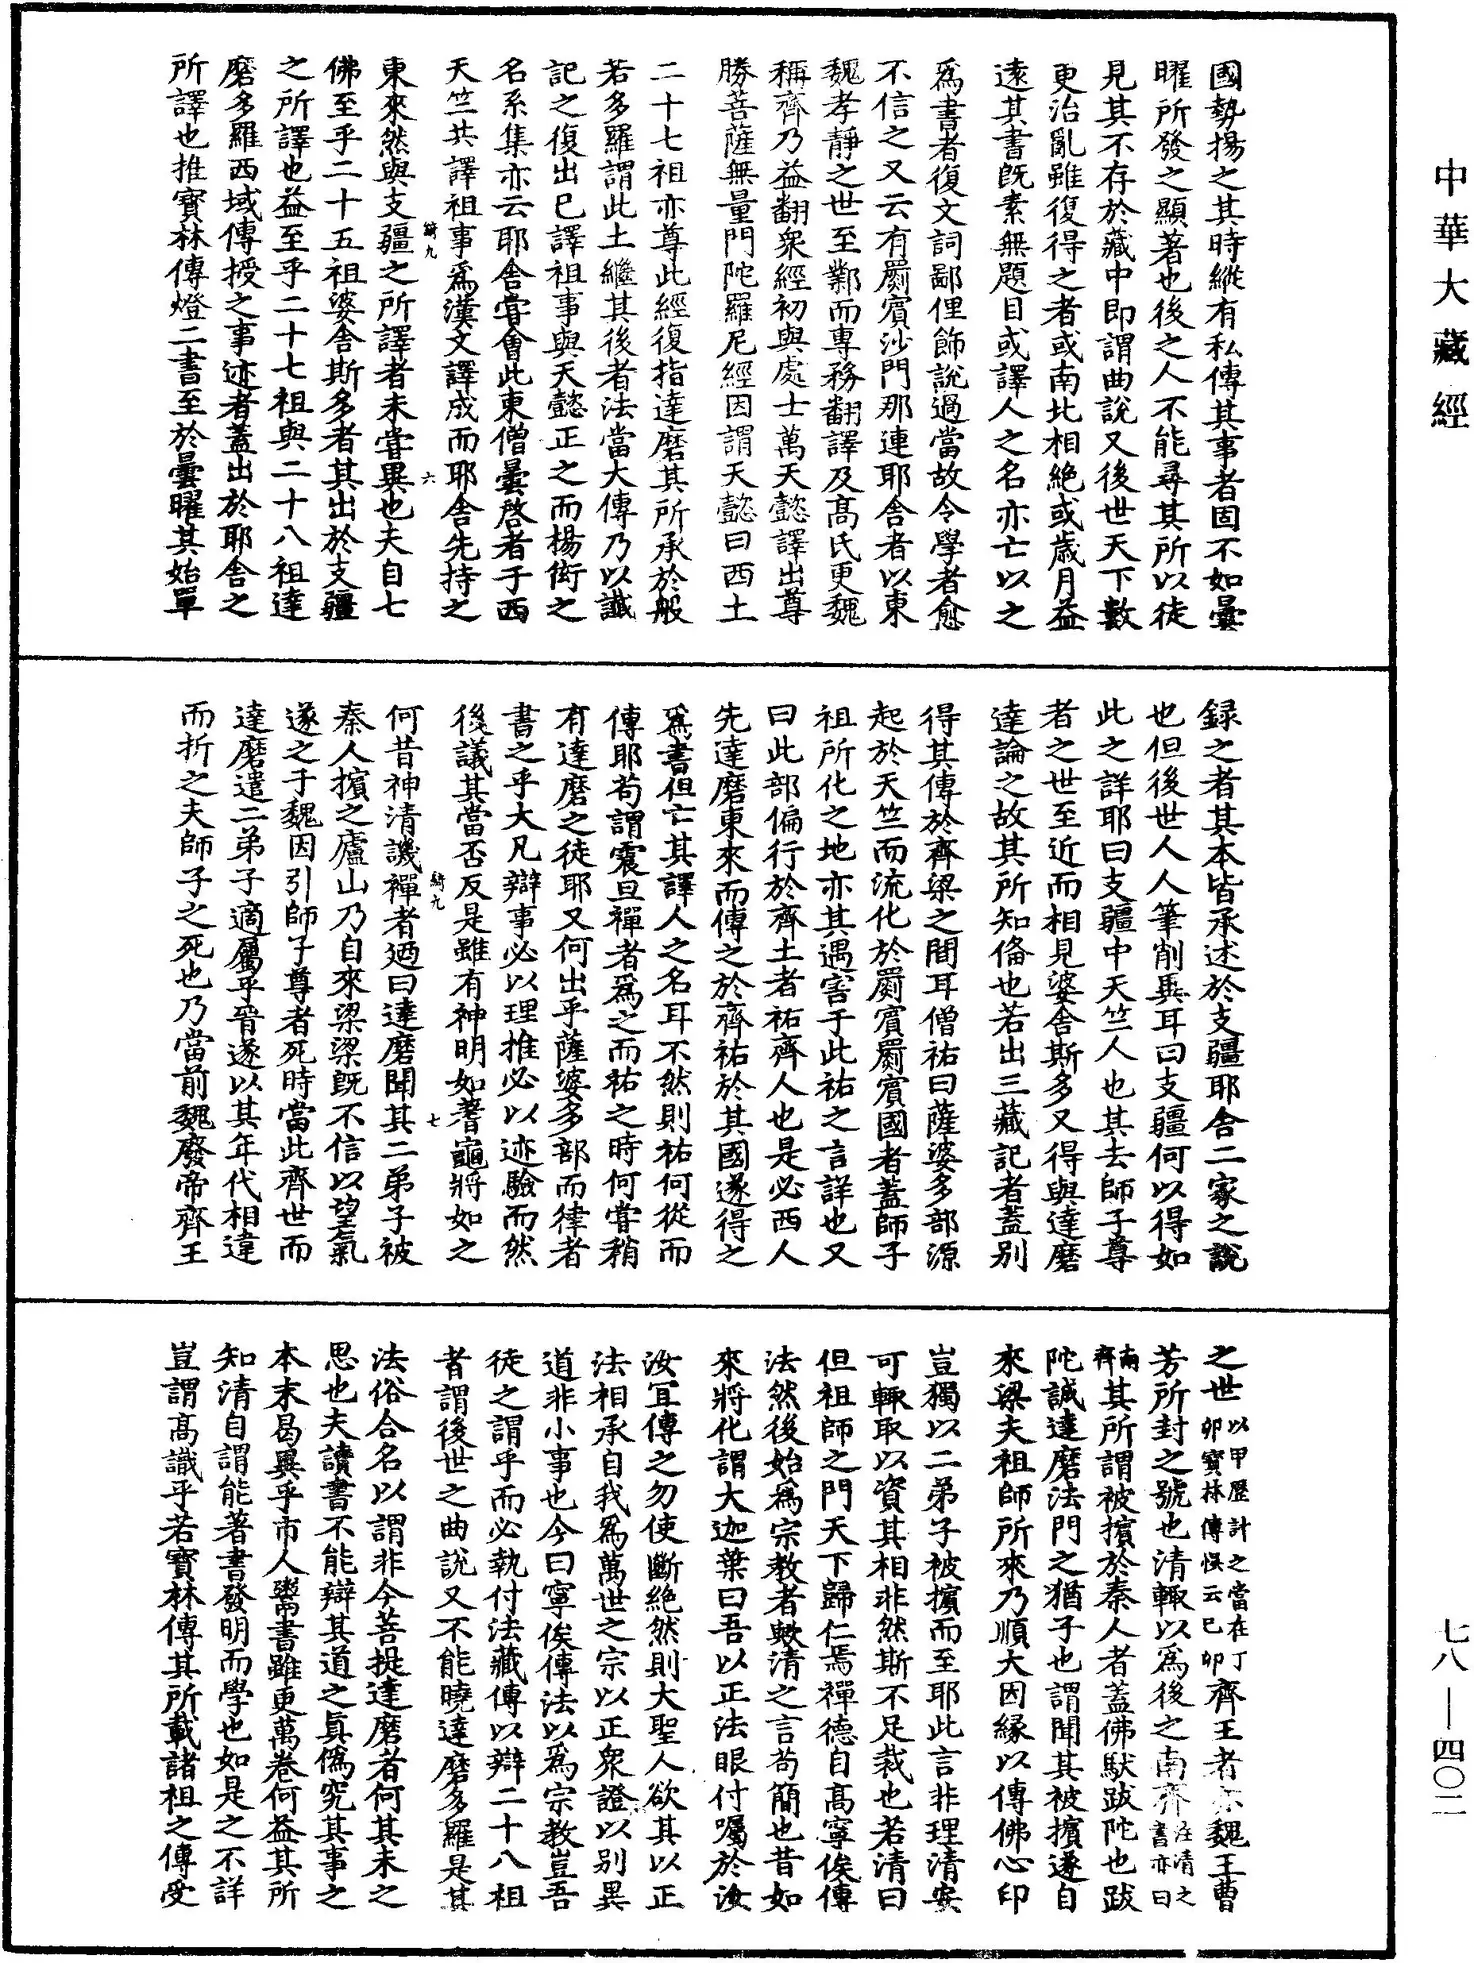 中華大藏經
七八—四〇二
國勢揚之其時縱有私傳其事者固不如曇
曜所發之顯著也後之人不能尋其所以徒
見其不存於藏中即謂曲說又後世天下數
更治亂雖復得之者或南北相絕或歲月益
遠其書既素無題目或譯人之名亦亡以之
爲書者復文詞鄙俚飾說過當故令學者愈
不信之又云有罽賓沙門那連耶舍者以東
魏孝靜之世至鄴而專務翻譯及高氏更魏
稱齊乃益翻衆經初與處士萬天懿譯出尊
勝菩薩無量門陀羅尼經因謂天懿曰西土
二十七祖亦尊此經復指達磨其所承於般
若多羅謂此土繼其後者法當大傳乃以讖
記之復出已譯祖事與天懿正之而楊衒之
名系集亦云耶舍甞會此東僧曇啓者于西
天竺共譯祖事爲漢文譯成而耶舍先持之
綺九
六
東來然與支疆之所譯者未甞異也夫自七
佛至乎二十五祖婆舍斯多者其出於支疆
之所譯也益至乎二十七祖與二十八祖達
磨多羅西域傳授之事迹者蓋出於耶舍之
所譯也推寶林傳燈二書至於曇曜其始單
錄之者其本皆承述於支疆耶舍二家之說
也但後世人人筆削異耳曰支疆何以得如
此之詳耶曰支疆中天竺人也其去師子尊
者之世至近而相見婆舍斯多又得與達磨
達論之故其所知俻也若出三藏記者蓋別
得其傳於齊梁之間耳僧祐曰薩婆多部源
起於天竺而流化於罽賓罽賓國者蓋師子
祖所化之地亦其遇害于此祐之言詳也又
曰此部偏行於齊土者祐齊人也是必西人
先達磨東來而傳之於齊祐於其國遂得之
爲書但亡其譯人之名耳不然則祐何從而
傳耶苟謂震旦禪者爲之而祐之時何甞稍
有達磨之徒耶又何出乎薩婆多部而律者
書之乎大凡辯事必以理推必以迹驗而然
後議其當否反是雖有神明如蓍龜將如之
綺九
七
何昔神清譏禪者廼曰達磨聞其二弟子被
秦人擯之廬山乃自來梁梁旣不信以望氣
遂之于魏因引師子尊者死時當此齊世而
達磨遣二弟子適屬乎晉遂以其年代相違
而折之夫師子之死也乃當前魏廢帝齊王
之世以甲歷計之當在丁卯寶林傳悞云己卯齊王者亦魏王曹
芳所封之號也清輙以爲後之南齊注清之書亦曰
南齊其所謂被擯於秦人者蓋佛馱跋陀也跋
陀誠達磨法門之猶子也謂聞其被擯遂自
來梁夫祖師所來乃順大因緣以傳佛心印
豈獨以二弟子被擯而至耶此言非理清安
可輙取以資其相非然斯不足裁也若清曰
但祖師之門天下歸仁焉禪德自高寧俟傳
法然後始爲宗教者歟清之言苟簡也昔如
來將化謂大迦葉曰吾以正法眼付囑於汝
汝冝傳之勿使斷絕然則大聖人欲其以正
法相承自我爲萬世之宗以正衆證以別異
道非小事也今曰寧俟傳法以爲宗教豈吾
徒之謂乎而必執付法藏傳以辯二十八祖
者謂後世之曲說又不能曉達磨多羅是其
法俗合名以謂非今菩提達磨者何其未之
思也夫讀書不能辯其道之眞僞究其事之
本末曷異乎市人鬻書雖更萬卷何益其所
知清自謂能著書發明而學也如是之不詳
豈謂高識乎若寶林傳其所載諸祖之傳受